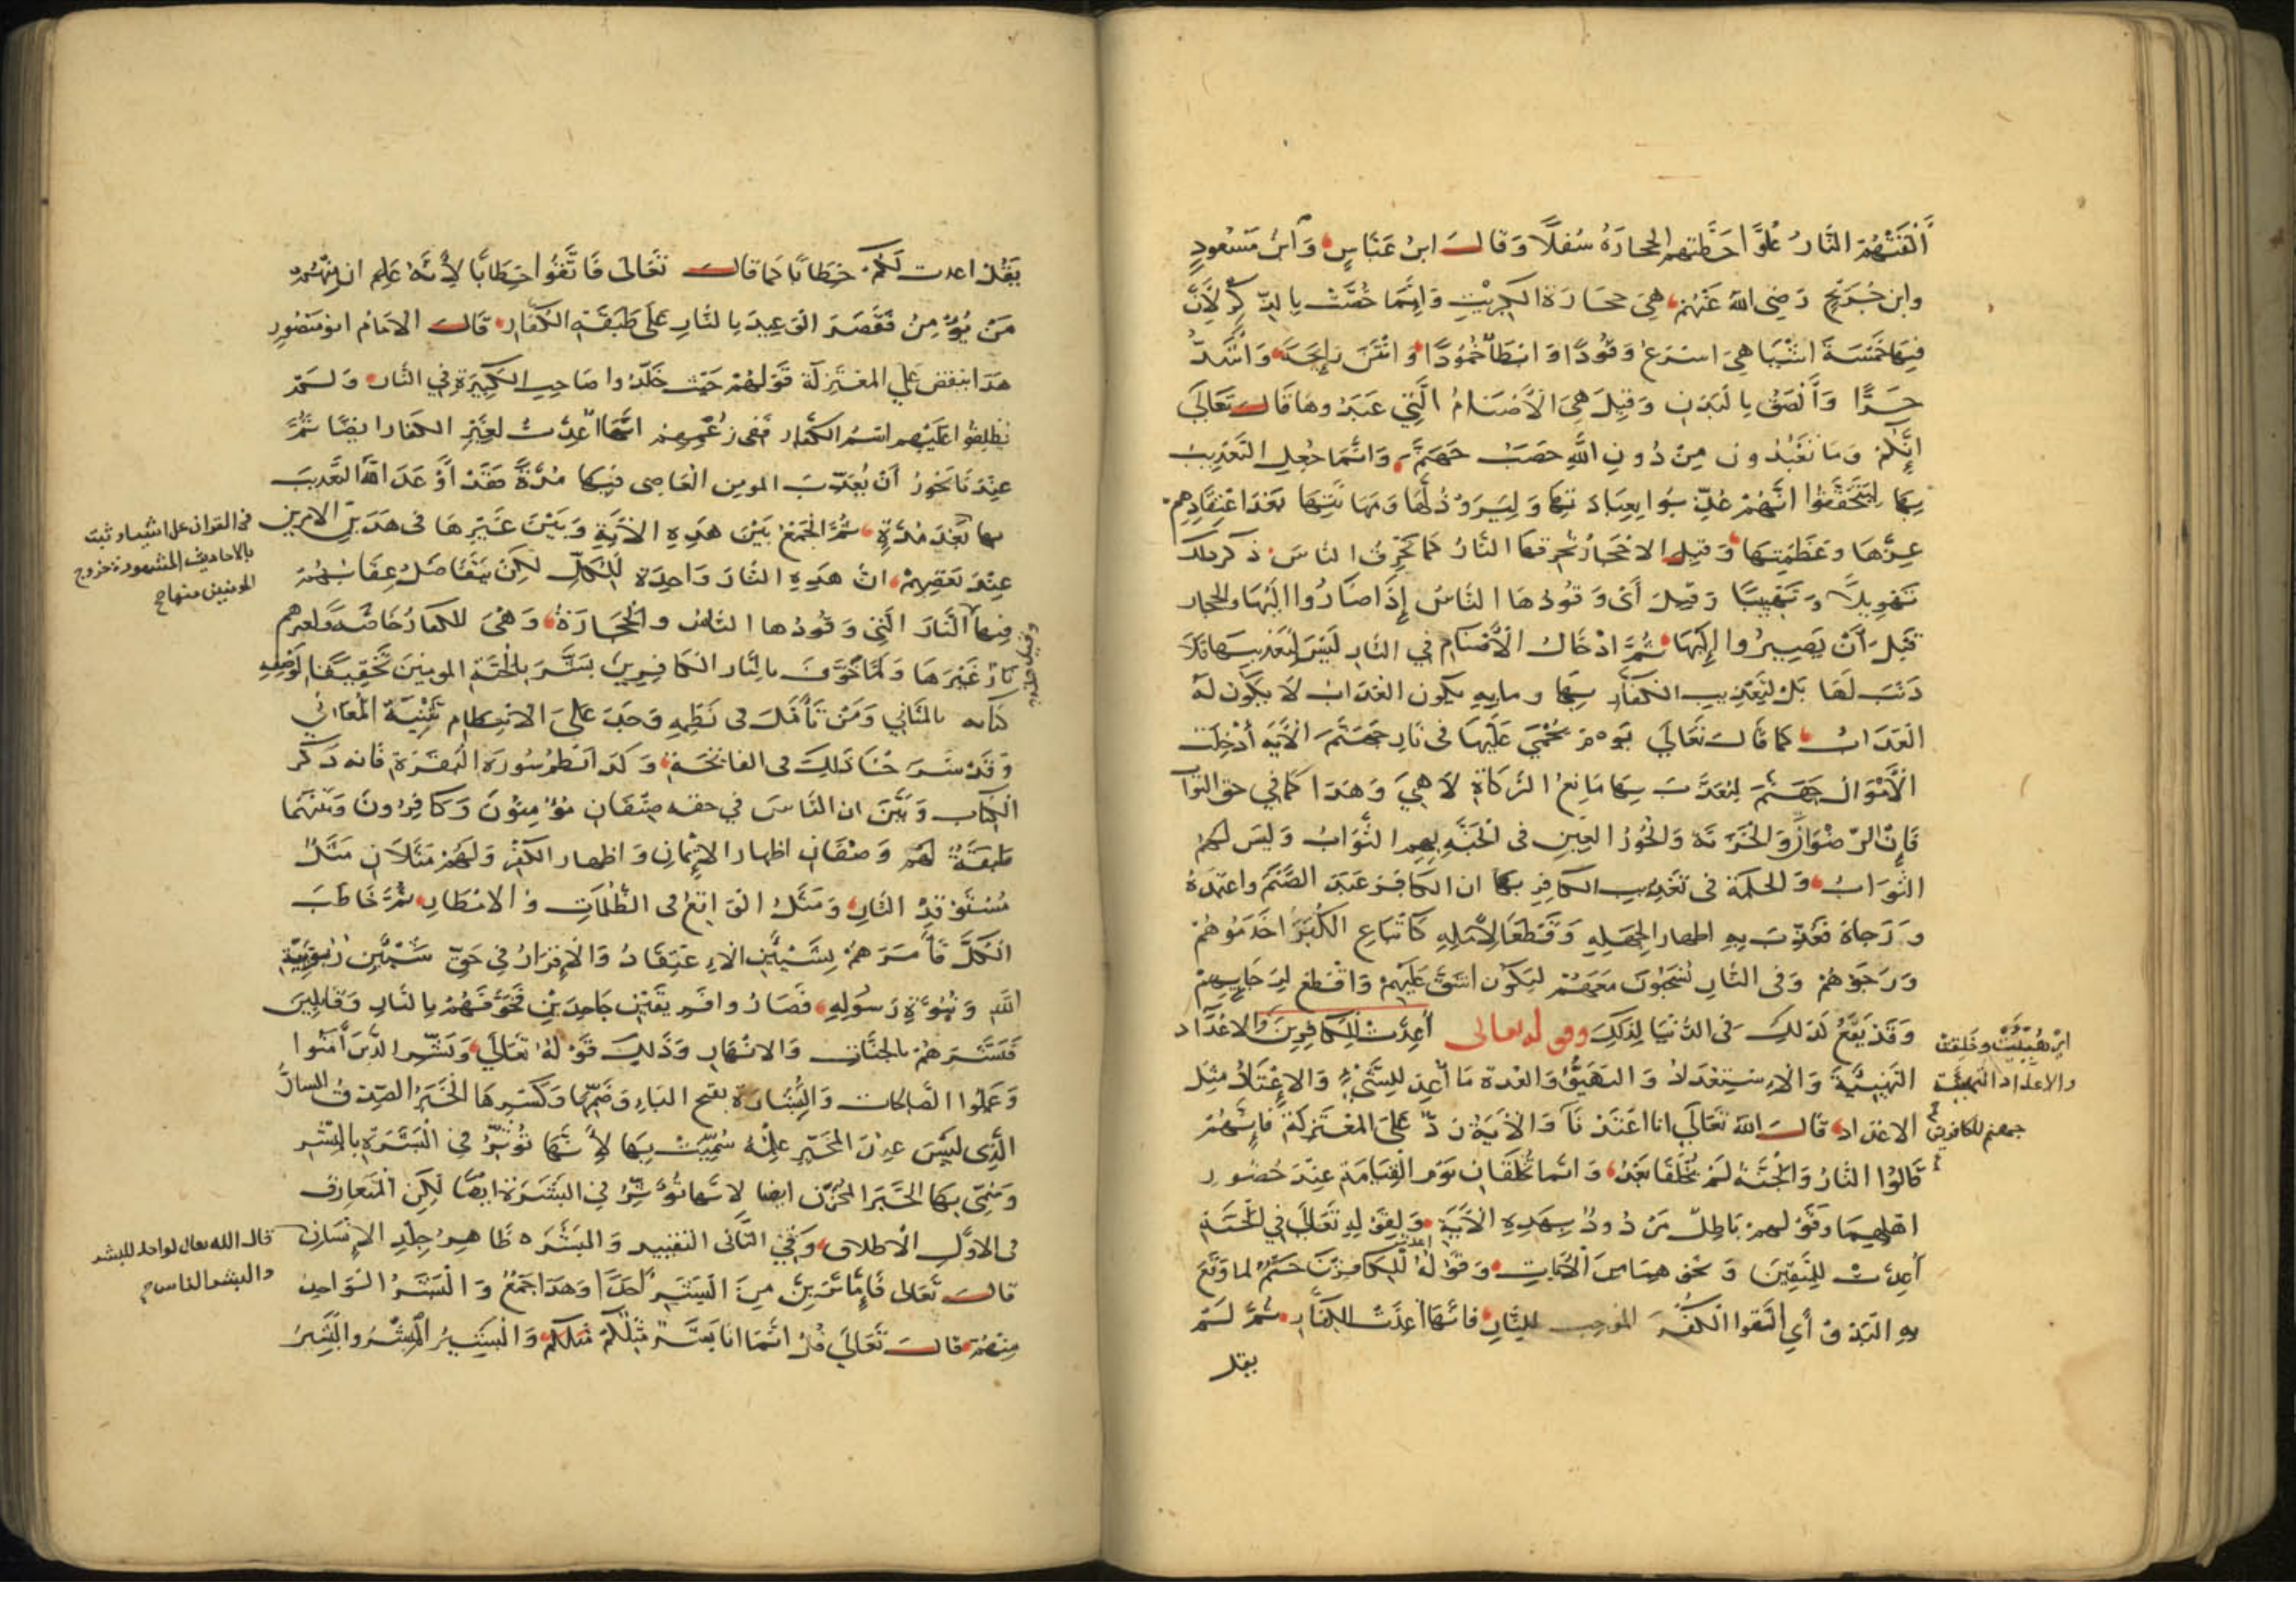 ألقتهم النار علوا حطتهم الحجارة سفلا وقال ابن عباس وابن مسعود
وابن جريج رضي الله عنهم هي حجارة الكبريت وإنما خصت بالذكر لأن
فيها خمسة أشيا هي أسرع وقودا وابطأ خمودا وانتن رايحة وأشد
حرا وألصق بالبدن وقيل هي الأصنام التي عبدوها قال تعالى
إنكم وما تعبدون من دون الله حصب جهنم وانما جعل التعذيب
بها ليتحققوا انهم عذبوا بعبادتها وليروا ذلها ومهانتها بعد اعتقادهم
عزها وعظمتها وقيل الاحجار تحرقها النار كما تحرق الناس ذكر ذلك
تهويلا وقيل أي وقودها الناس إذا صاروا اليها والحجار
قبل أن يصيروا إليها ثم ادخال الأصنام في النار ليس لتعذيبها فلا
ذنب لها بل لتعذيب الكفار بها وما به يكون العذاب لا يكون له
العذاب كما قال تعالى يوم يحمى عليها في نار جهنم الآية أدخلت
الأموال جهنم ليعذب بها مانع الزكاة لا هي وهذا كما في حق الثواب
فإن الرضوان والخزنة والحور العين في الجنة بهم الثواب وليس لهم
الثواب والحكمة في تعذيب الكافر بها ان الكافر عبد الصنم واعتمده
ورجاه فعذب به اظهارا لجهله وقطعا لأمله كأتباع الكبرا خدموهم
ورجوهم وفي النار يسحبون معهم ليكون اشق عليهم واقطع لرجايهم
وقد يقع كذلك في الدنيا لذلك وقوله تعالى أعدت للكافرين والاعداد
التهيئة والاستعداد التهيؤ والعدة ما أعد للشيء والإعتاد مثل
الاعداد قال الله تعالى انا اعتدنا والآية رد على المعتزلة فإنهم
قالوا النار والجنة لم تخلقا بعد وانما تخلقان يوم القيامة عند حضور
اهلهما وقولهم باطل مردود بهذه الآية وبقوله تعالى في الجنة
أعدت للمتقين ونحوهما من الآيات وقوله أعدت للكافرين ختم لما وقع
به البدؤ أي اتقوا الكفر الموجب للنار فانها أعدت للكفار ثم لم
يقل
اي هيئت وخلقت
والاعداد التهيئة
جهنم للكافرين
يقل اعدت لكم خطابا كما قال تعالى فاتقوا خطابا لأنه علم ان منهم
من يؤمن فقصر الوعيد بالنار على طبقة الكفار قال الامام ابو منصور
هذا ينقض على المعتزلة قولهم حيث خلدوا صاحب الكبيرة في النار ولم
يطلقوا عليهم اسم الكفار ففي زعمهم انها أعدت لغير الكفار ايضا ثم
عندنا يجوز أن يعذب المومن العاصي فيها مدة فقد أوعد الله التعذيب
بها بعد مدة ثم الجمع بين هذه الآية وبين غيرها في هذين الامرين
عند بعضهم ان هذه النار واحدة للكل لكن يتفاضل عقابهم
فيها النار التي وقودها الناس والحجارة وهي للكفار خاصة ولغيرهم
نار غيرها ولما خوف بالنار الكافرين بشر بالجنة المومنين تحقيقا لوصف
كتابه بالمثاني ومن تأمل في نظمه وجد على الانتظام تثنية المعاني
وقد شرحنا ذلك في الفاتحة وكذا نظم سورة البقرة فانه ذكر
الكتاب وبين ان الناس في حقه صنفان مؤمنون وكافرون وبينهما
طبقة لهم وصفان اظهار الإيمان واظهار الكفر ولهم مثلان مثل
مستوقد النار ومثل الواقع في الظلمات والامطار ثم خاطب
الكل فأمرهم بشيئين الاعتقاد والإقرار في حق شيئين ربوبية
الله ونبوة رسوله فصاروا فريقين جاحدين فخوفهم بالنار وقابلين
فبشرهم بالجنات والانهار وذلك قوله تعالى وبشر الذين آمنوا
وعملوا الصالحات والبشارة بفتح الباء وضمها وكسرها الخبر الصدق السار
الذي ليس عند المخبر علمه سميت بها لأنها تؤثر في البشرة بالبشر
وسمي بها الخبر المحزن ايضا لانها تؤثر في البشرة ايضا لكن المتعارف
في الاول الاطلاق وفي الثاني التقييد والبشرة ظاهر جلد الإنسان
قال تعالى فإما ترين من البشر أحدا وهذا جمع والبشر الواحد
منهم قال تعالى قل انما انا بشر مثلكم والبشير المبشر والبشير
في القران على اشياء وثبت
بالاحاديث المشهورة خروج
المومنين منها صح
قال الله تعالى لواحة للبشر
والبشر الناس صح